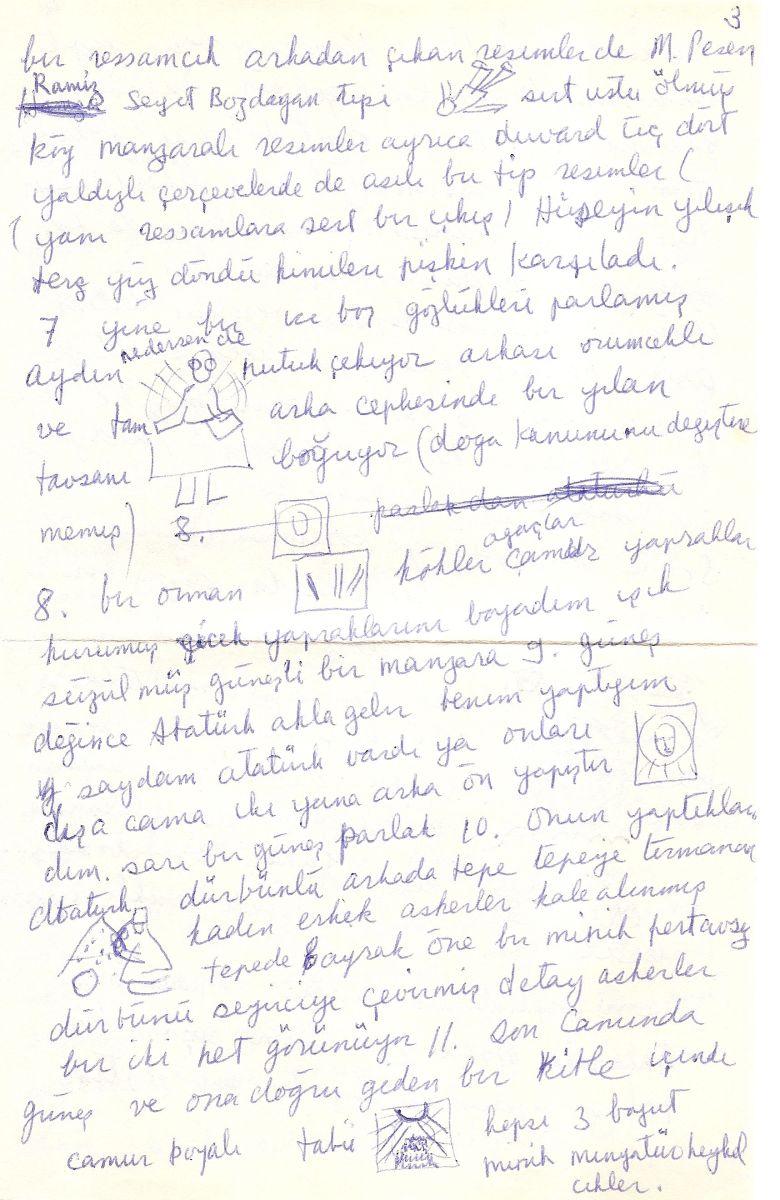 3
bir ressamcık arkadan çıkan resimlerde M. Pesen
Ramiz
Seyit Bozdagan tipi sırt ustu ölmüş
köy manzaralı resimler ayrıca duvard üç dört
yaldızlı çerçevelerde de asılı bu tip resimler (
( yani ressamlara sert bir çıkış ) Hüseyin yılışık
ters yüz döndü kimileri pişkin karşıladı.
7 yine bir iki boş gözlükleri parlamış
aydın nedersen de nutuk çekiyor arkası örümcekli
ve tam arka cephesinde bir yılan
tavsanı boğuyor (doga kanununu değiştire
memiş) 8. parlakdan atatürklü
ağaçlar
8. bir orman kökler çamur yapraklar
kurumuş çiçek yapraklarını boyadım ışık
süzülmüş güneşli bir manzara 9. güneş
değince Atatürk akla gelir benim yaptığım
saydam atatürk vardı ya onları
dışa cama iki yana arka ön yapıştır
dım. sarı bir güneş parlak 10. onun yaptıkları
Atatürk dürbünlü arkada tepe tepeiye tırmanan
kadın erkek askerler kale alınmış
tepede bayrak öne bir minik pertavsız
dürbünü seyirciye çevirmiş detay askerler
bir iki net görünüyor 11. son camında
güneş ve ona doğru giden bir kitle içinde
camur boyalı tabii hepsi 3 boyut
minik minyatür heykel
cikler.